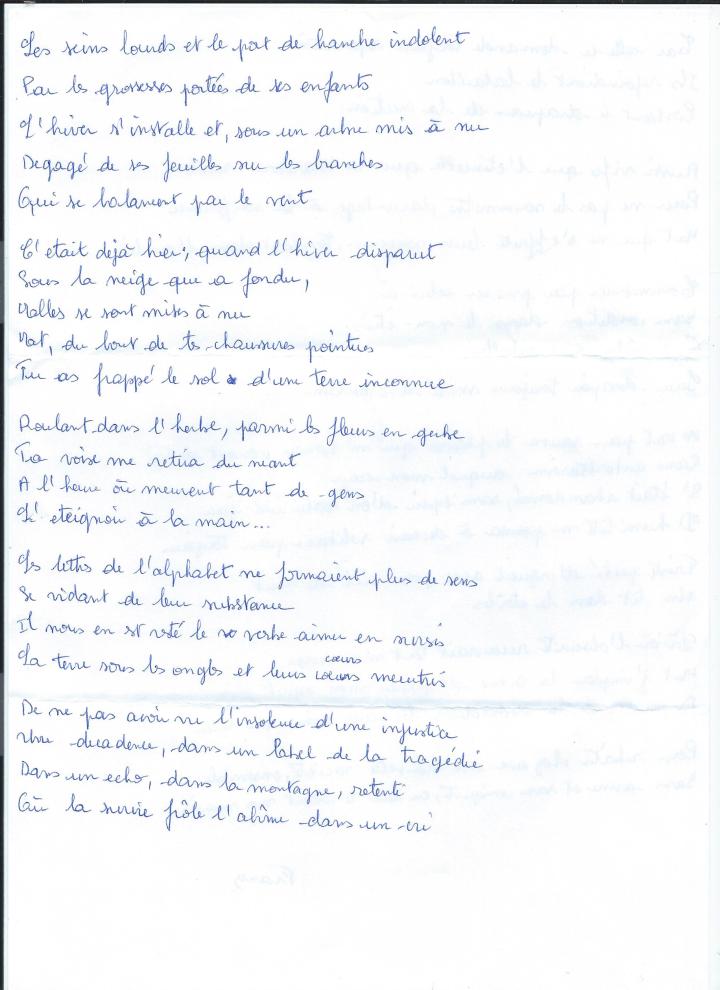 Les seins lourds et le port de hanche indolent
Par les grossesses portées de ses enfants
L'hiver s'installe et, sous un arbre mis à nu
Degagé de ses feuilles sur les branches
Qui se balancent par le vent
C'était déjà hier, quand l'hiver disparut
Sous la neige que a fondu,
se sont mises à nu
du bout de tes chaussures pointues
Tu as frappé le sol d'une terre inconnue
Roulant dans l'herbe, parmi les fleurs en gerbe
Ta voise me retira du neant
A l'heure où meurent tant de gens
L'eteignoir à la main...
Les lettres de l'alphabet ne formaient plus de sens
Se vidant de leur substance
Il nous en est resté le verbe aimer en sursis
La terre sous les ongles et leurs coeurs meurtris
De ne pas avoir vu l'insolence d'une injustice
Une decadence, dans un label de la tragédie
Dans un echo, dans la montagne, retenti
Où la survie frôle l'abîme dans un cri